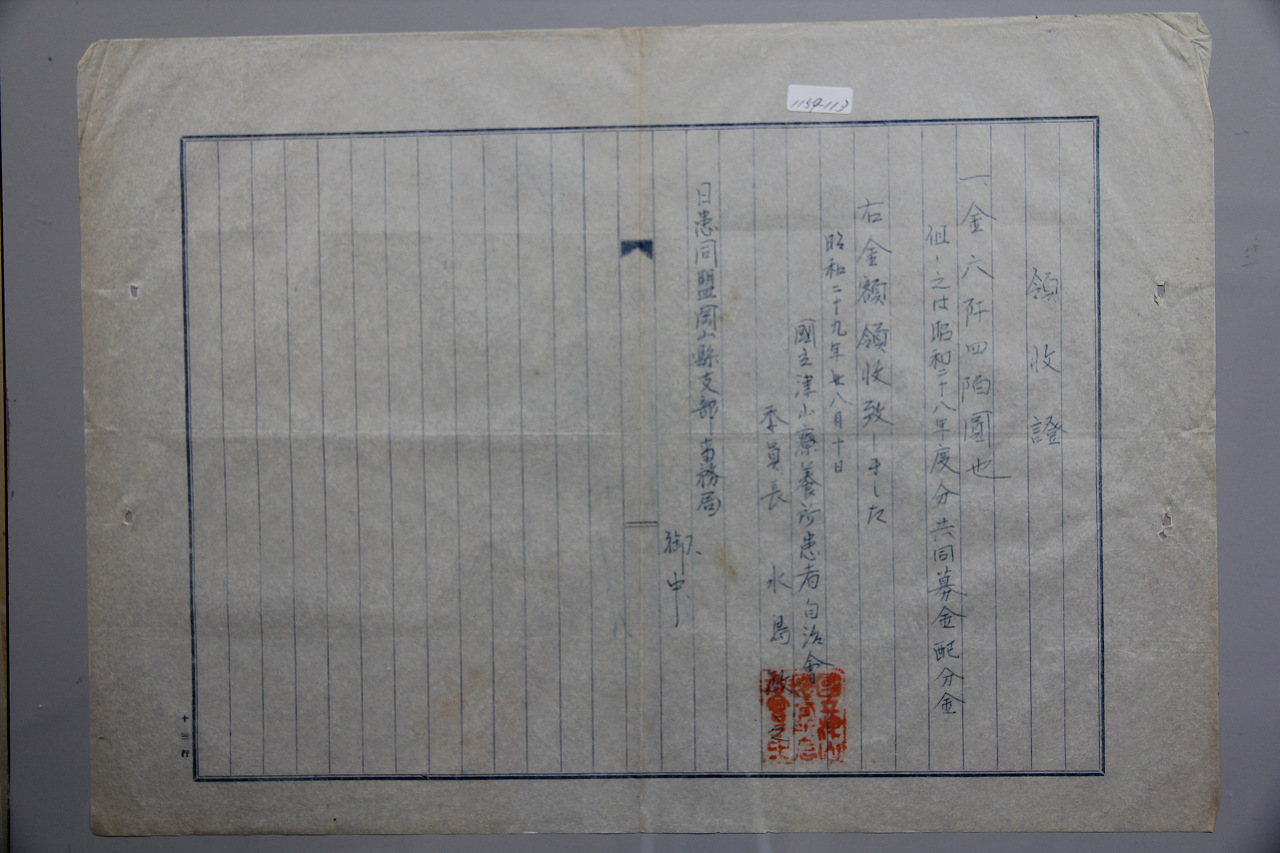 1154-113
領收證
一、金六阡四陌圓也
但、之は昭和二十八年度分共同募金配分金
右金額領收致しました
昭和二十九年八月十日
國立津山療養所患者自治會
委員長 水島
日患同盟岡山縣支部事務局
御中
十三行